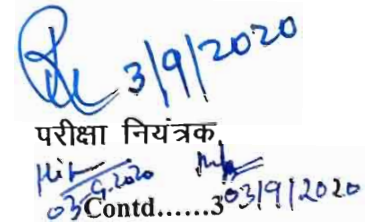 3/9/2020
परीक्षा नियंत्रक
03.9.2020 03/9/2020
Contd......3